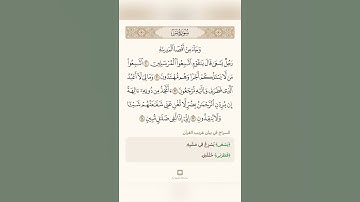 سُورَةُ يسٓ
وَجَآءَ مِنْ أَقْصَا ٱلْمَدِينَةِ
رَجُلٌ يَسْعَىٰ قَالَ يَٰقَوْمِ ٱتَّبِعُوا۟ ٱلْمُرْسَلِينَ ٢٠ ٱتَّبِعُوا۟
مَن لَّا يَسْـَٔلُكُمْ أَجْرًا وَهُم مُّهْتَدُونَ ٢١ وَمَا لِىَ لَآ أَعْبُدُ
ٱلَّذِى فَطَرَنِى وَإِلَيْهِ تُرْجَعُونَ ٢٢ ءَأَتَّخِذُ مِن دُونِهِۦٓ ءَالِهَةً
إِن يُرِدْنِ ٱلرَّحْمَٰنُ بِضُرٍّ لَّا تُغْنِ عَنِّى شَفَٰعَتُهُمْ شَيْـًٔا
وَلَا يُنقِذُونِ ٢٣ إِنِّىٓ إِذًا لَّفِى ضَلَٰلٍ مُّبِينٍ ٢٤
السراج في بيان غريب القرآن
﴿يَسْعَى﴾ يُسْرِعُ فِي مَشْيِهِ.
﴿فَطَرَنِي﴾ خَلَقَنِي.